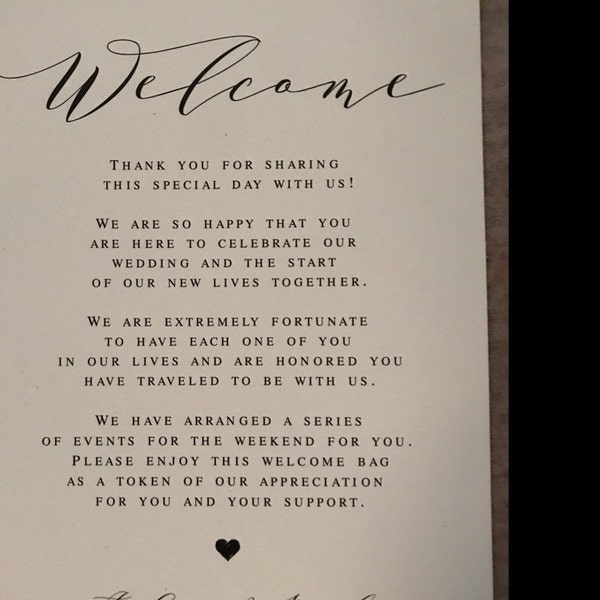 Welcome
THANK YOU FOR SHARING
THIS SPECIAL DAY WITH US!
WE ARE SO HAPPY THAT YOU
ARE HERE TO CELEBRATE OUR
WEDDING AND THE START
OF OUR NEW LIVES TOGETHER.
WE ARE EXTREMELY FORTUNATE
TO HAVE EACH ONE OF YOU
IN OUR LIVES AND ARE HONORED YOU
HAVE TRAVELED TO BE WITH US.
WE HAVE ARRANGED A SERIES
OF EVENTS FOR THE WEEKEND FOR YOU.
PLEASE ENJOY THIS WELCOME BAG
AS A TOKEN OF OUR APPRECIATION
FOR YOU AND YOUR SUPPORT.